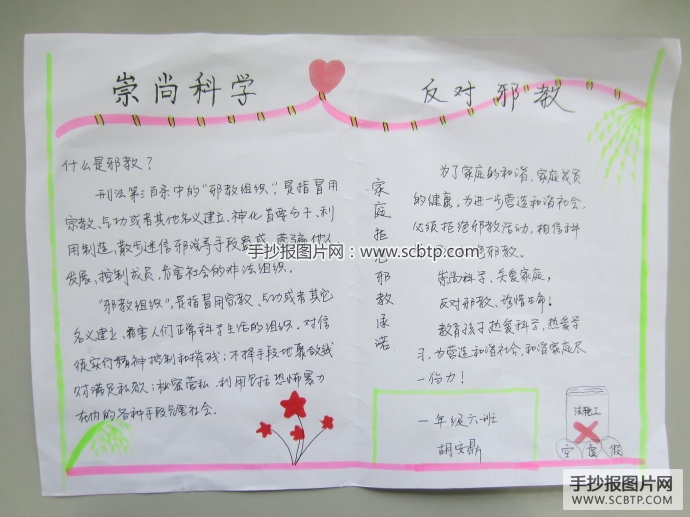 崇尚科学
反对邪教
什么是邪教?
刑法第三百条中的"邪教组织",是指冒用
宗教、气功或者其他名义建立,神化首要分子,利
用制造、散步迷信邪说等手段蛊惑、蒙骗他人
发展、控制成员,危害社会的非法组织。
"邪教组织",是指冒用宗教、气功或者其它
名义建立、损害人们正常科学生活的组织。对信
徒实行精神控制和摧残;不择手段地聚敛钱
财满足私欲;秘密营私、利用包括恐怖暴力
在内的各种手段危害社会。
家庭拒绝邪教承诺
为了家庭的和谐、家庭成员
的健康,为进一步营造和谐社会,
必须拒绝邪教活动,相信科
邪教。
崇尚科学、关爱家庭,
反对邪教、珍惜生命。
教育孩子热爱科学,热爱学
习,为营造和谐社会、和谐家庭尽
一份力!
一年级六班
胡安鼎
空 虚 假
手抄报图片网:www.scbtp.com
手抄报图片网
WWW.SCBTP.COM